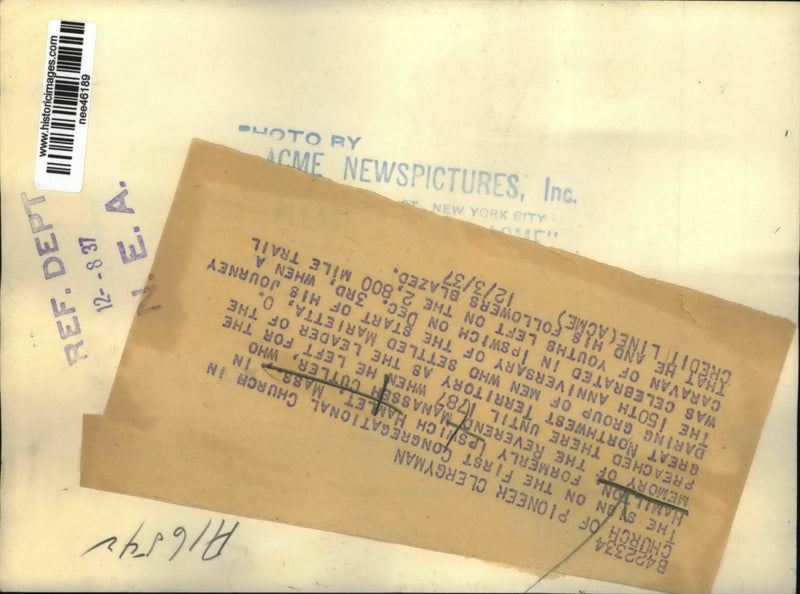 www.historicimages.com
nee46189
PHOTO BY
ACME NEWSPICTURES, Inc.
ST. NEW YORK CITY
ACME"
REF. DEPT
12--8 37
N. E. A.
B422334
CHURCH OF PIONEER CLERGYMAN
THE SIGN ON THE FIRST CONGREGATIONAL CHURCH IN
HAMILTON FORMERLY IPSWICH HAMLET MASS. IN
MEMORY OF THE REVEREND MANASSEH CUTLER, WHO
PREACHED THERE UNTIL 1787 WHEN HE LEFT FOR THE
GREAT NORTHWEST TERRITORY AS THE LEADER OF THE
DARING GROUP OF MEN WHO SETTLED MARIETTA, O.
THE 150TH ANNIVERSARY OF THE START OF HIS JOURNEY
WAS CELEBRATED IN IPSWICH ON DEC. 3RD WHEN A
CARAVAN OF YOUTHS LEFT ON THE 2,800 MILE TRAIL
THAT HE AND HIS FOLLOWERS BLAZED.
CREDIT LINE(ACME) 12/3/37